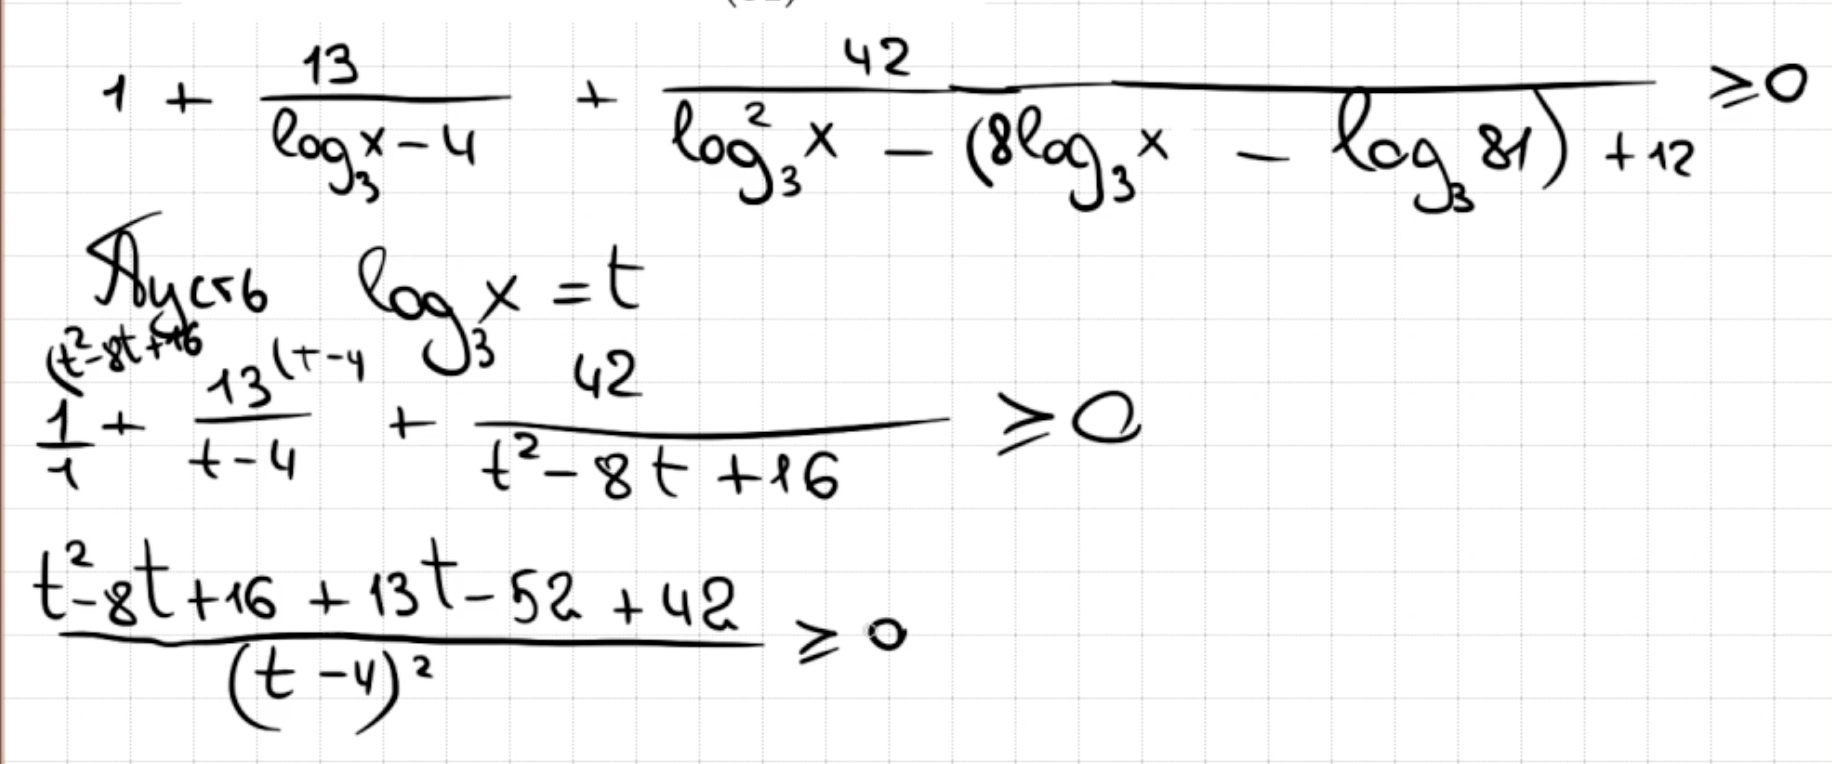 1 + 13/(log₃x − 4) + 42/(log₃²x − (8log₃x − log₃81) + 12) ≥ 0
Пусть log₃x = t
(t² − 8t + 16 (t − 4
1/1 + 13/(t − 4) + 42/(t² − 8t + 16) ≥ 0
(t² − 8t + 16 + 13t − 52 + 42)/(t − 4)² ≥ 0